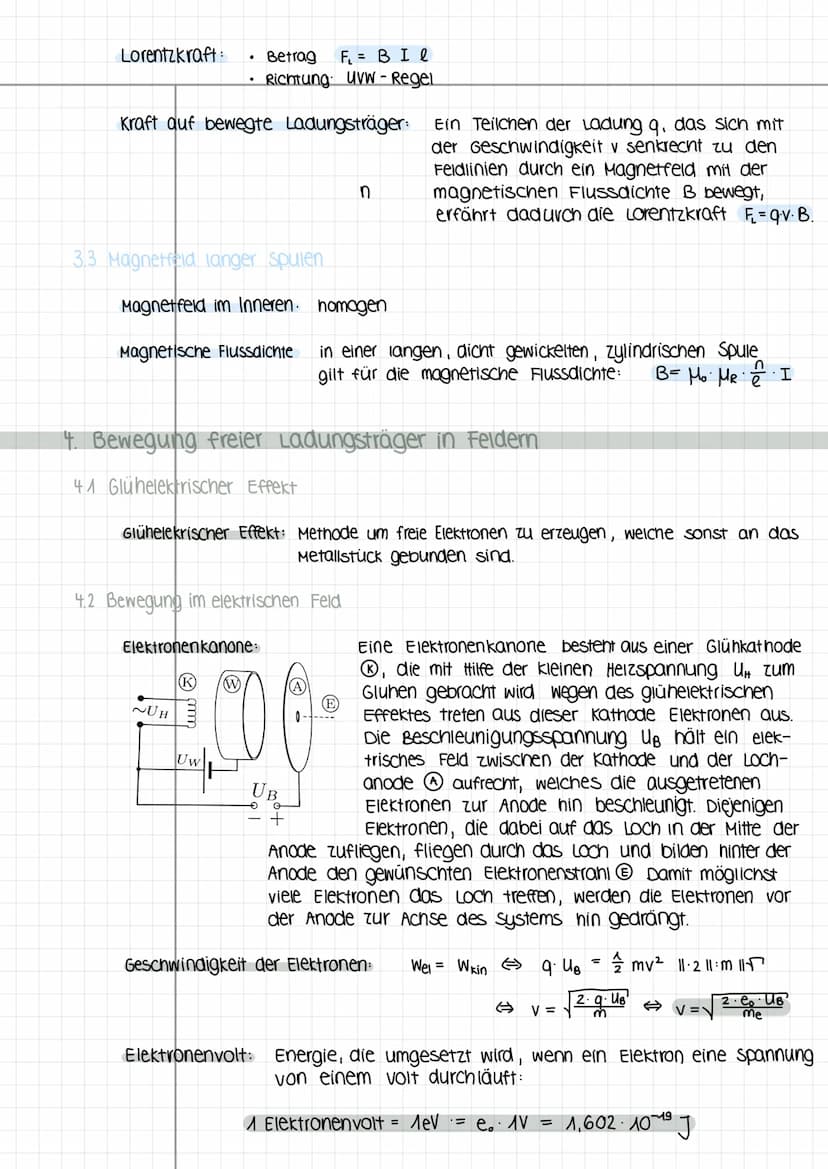 Lorentzkraft: • Betrag F_L = B I l
• Richtung: UVW-Regel
Kraft auf bewegte Ladungsträger: Ein Teilchen der Ladung q, das sich mit
der Geschwindigkeit v senkrecht zu den
Feldlinien durch ein Magnetfeld mit der
n magnetischen Flussdichte B bewegt,
erfährt dadurch die Lorentzkraft F_L = q·v·B.
3.3 Magnetfeld langer Spulen
Magnetfeld im Inneren: homogen
Magnetische Flussdichte in einer langen, dicht gewickelten, zylindrischen Spule
gilt für die magnetische Flussdichte: B = μ₀ · μ_R · n/l · I
4. Bewegung freier Ladungsträger in Feldern
4.1 Glühelektrischer Effekt
Glühelekrischer Effekt: Methode um freie Elektronen zu erzeugen, welche sonst an das
Metallstück gebunden sind.
4.2 Bewegung im elektrischen Feld
Elektronenkanone: Eine Elektronenkanone besteht aus einer Glühkathode
Ⓚ, die mit Hilfe der kleinen Heizspannung U_H zum
Glühen gebracht wird wegen des glühelektrischen
Effektes treten aus dieser Kathode Elektronen aus.
Die Beschleunigungsspannung U_B hält ein elek-
trisches Feld zwischen der Kathode und der Loch-
anode Ⓐ aufrecht, welches die ausgetretenen
Elektronen zur Anode hin beschleunigt. Diejenigen
Elektronen, die dabei auf das Loch in der Mitte der
Anode zufliegen, fliegen durch das Loch und bilden hinter der
Anode den gewünschten Elektronenstrahl Ⓔ Damit möglichst
viele Elektronen das Loch treffen, werden die Elektronen vor
der Anode zur Achse des Systems hin gedrängt.
Ⓚ Ⓦ Ⓐ Ⓔ
~U_H
U_W
U_B
− +
Geschwindigkeit der Elektronen: W_el = W_kin ⇔ q · U_B = 1/2 mv² ||·2 ||:m ||√
⇔ v = √(2·q·U_B/m) ⇔ v = √(2·e₀·U_B/m_e)
Elektronenvolt: Energie, die umgesetzt wird, wenn ein Elektron eine Spannung
von einem Volt durchläuft:
1 Elektronenvolt = 1eV := e₀ · 1V = 1,602 · 10⁻¹⁹ J